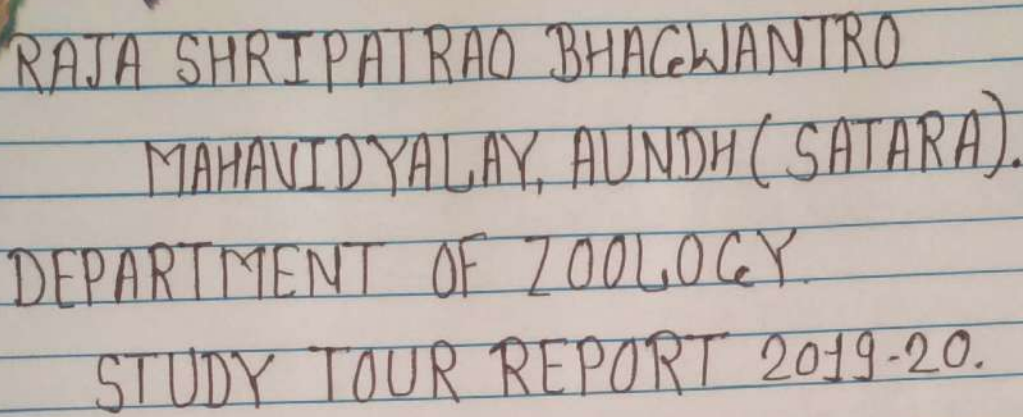 RAJA SHRIPATRAO BHAGWANTRO
MAHAVIDYALAY, AUNDH (SATARA).
DEPARTMENT OF ZOOLOGY.
STUDY TOUR REPORT 2019-20.